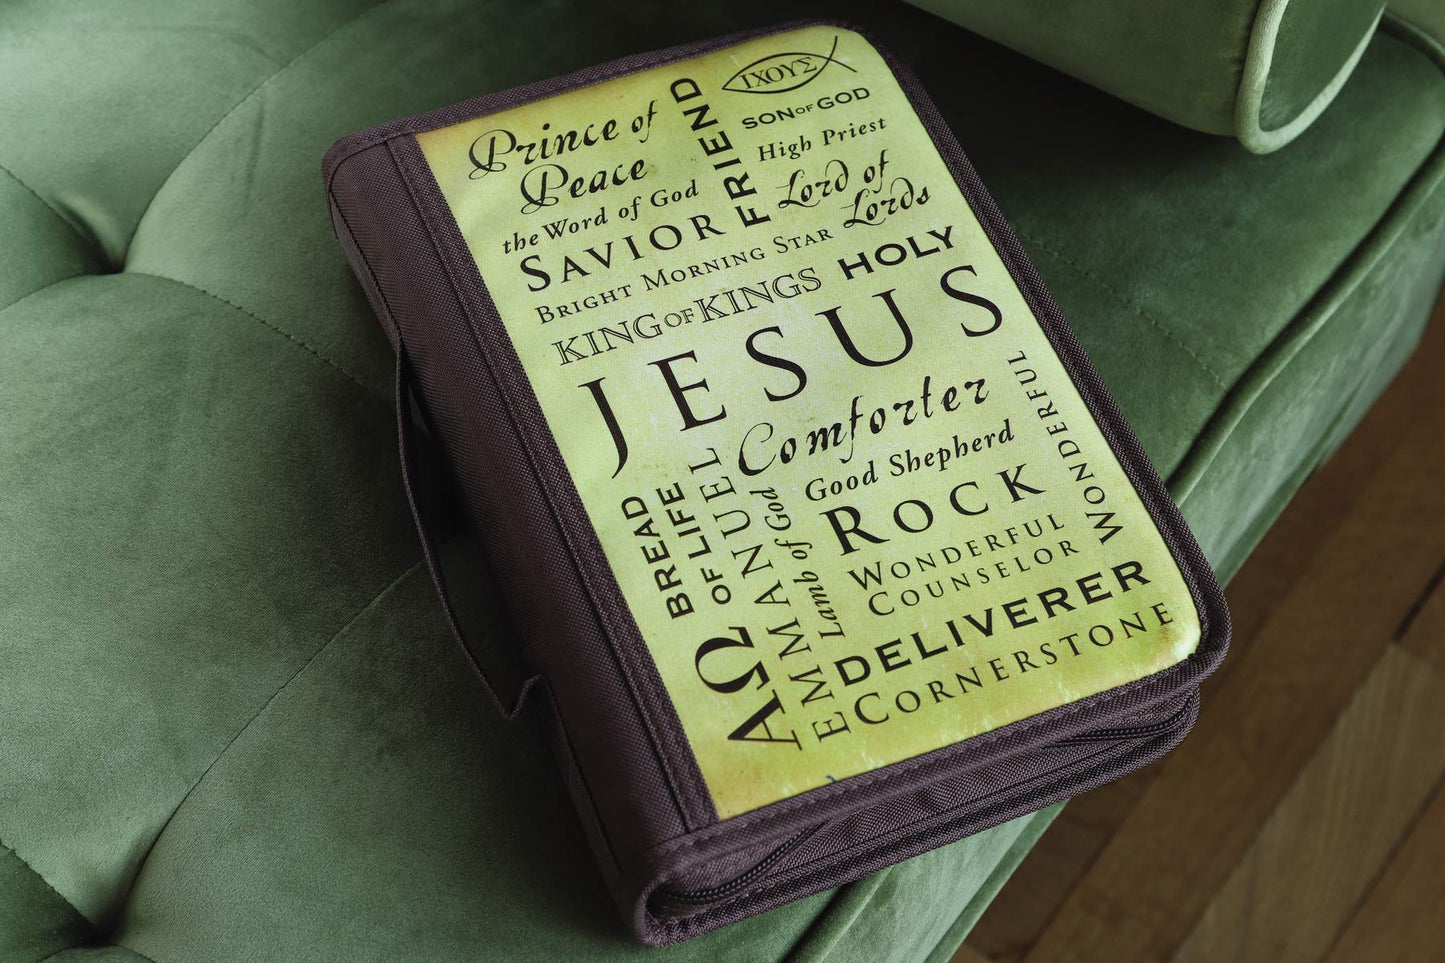 ΙΧΟΥΣ
Prince of
Peace
FRIEND
SON OF GOD
High Priest
the Word of God
Lord of
Lords
SAVIOR
BRIGHT MORNING STAR
HOLY
KING OF KINGS
JESUS
Comforter
WONDERFUL
Good Shepherd
BREAD
OF LIFE
EMMANUEL
Lamb of God
ROCK
WONDERFUL
COUNSELOR
ΑΩ
DELIVERER
CORNERSTONE